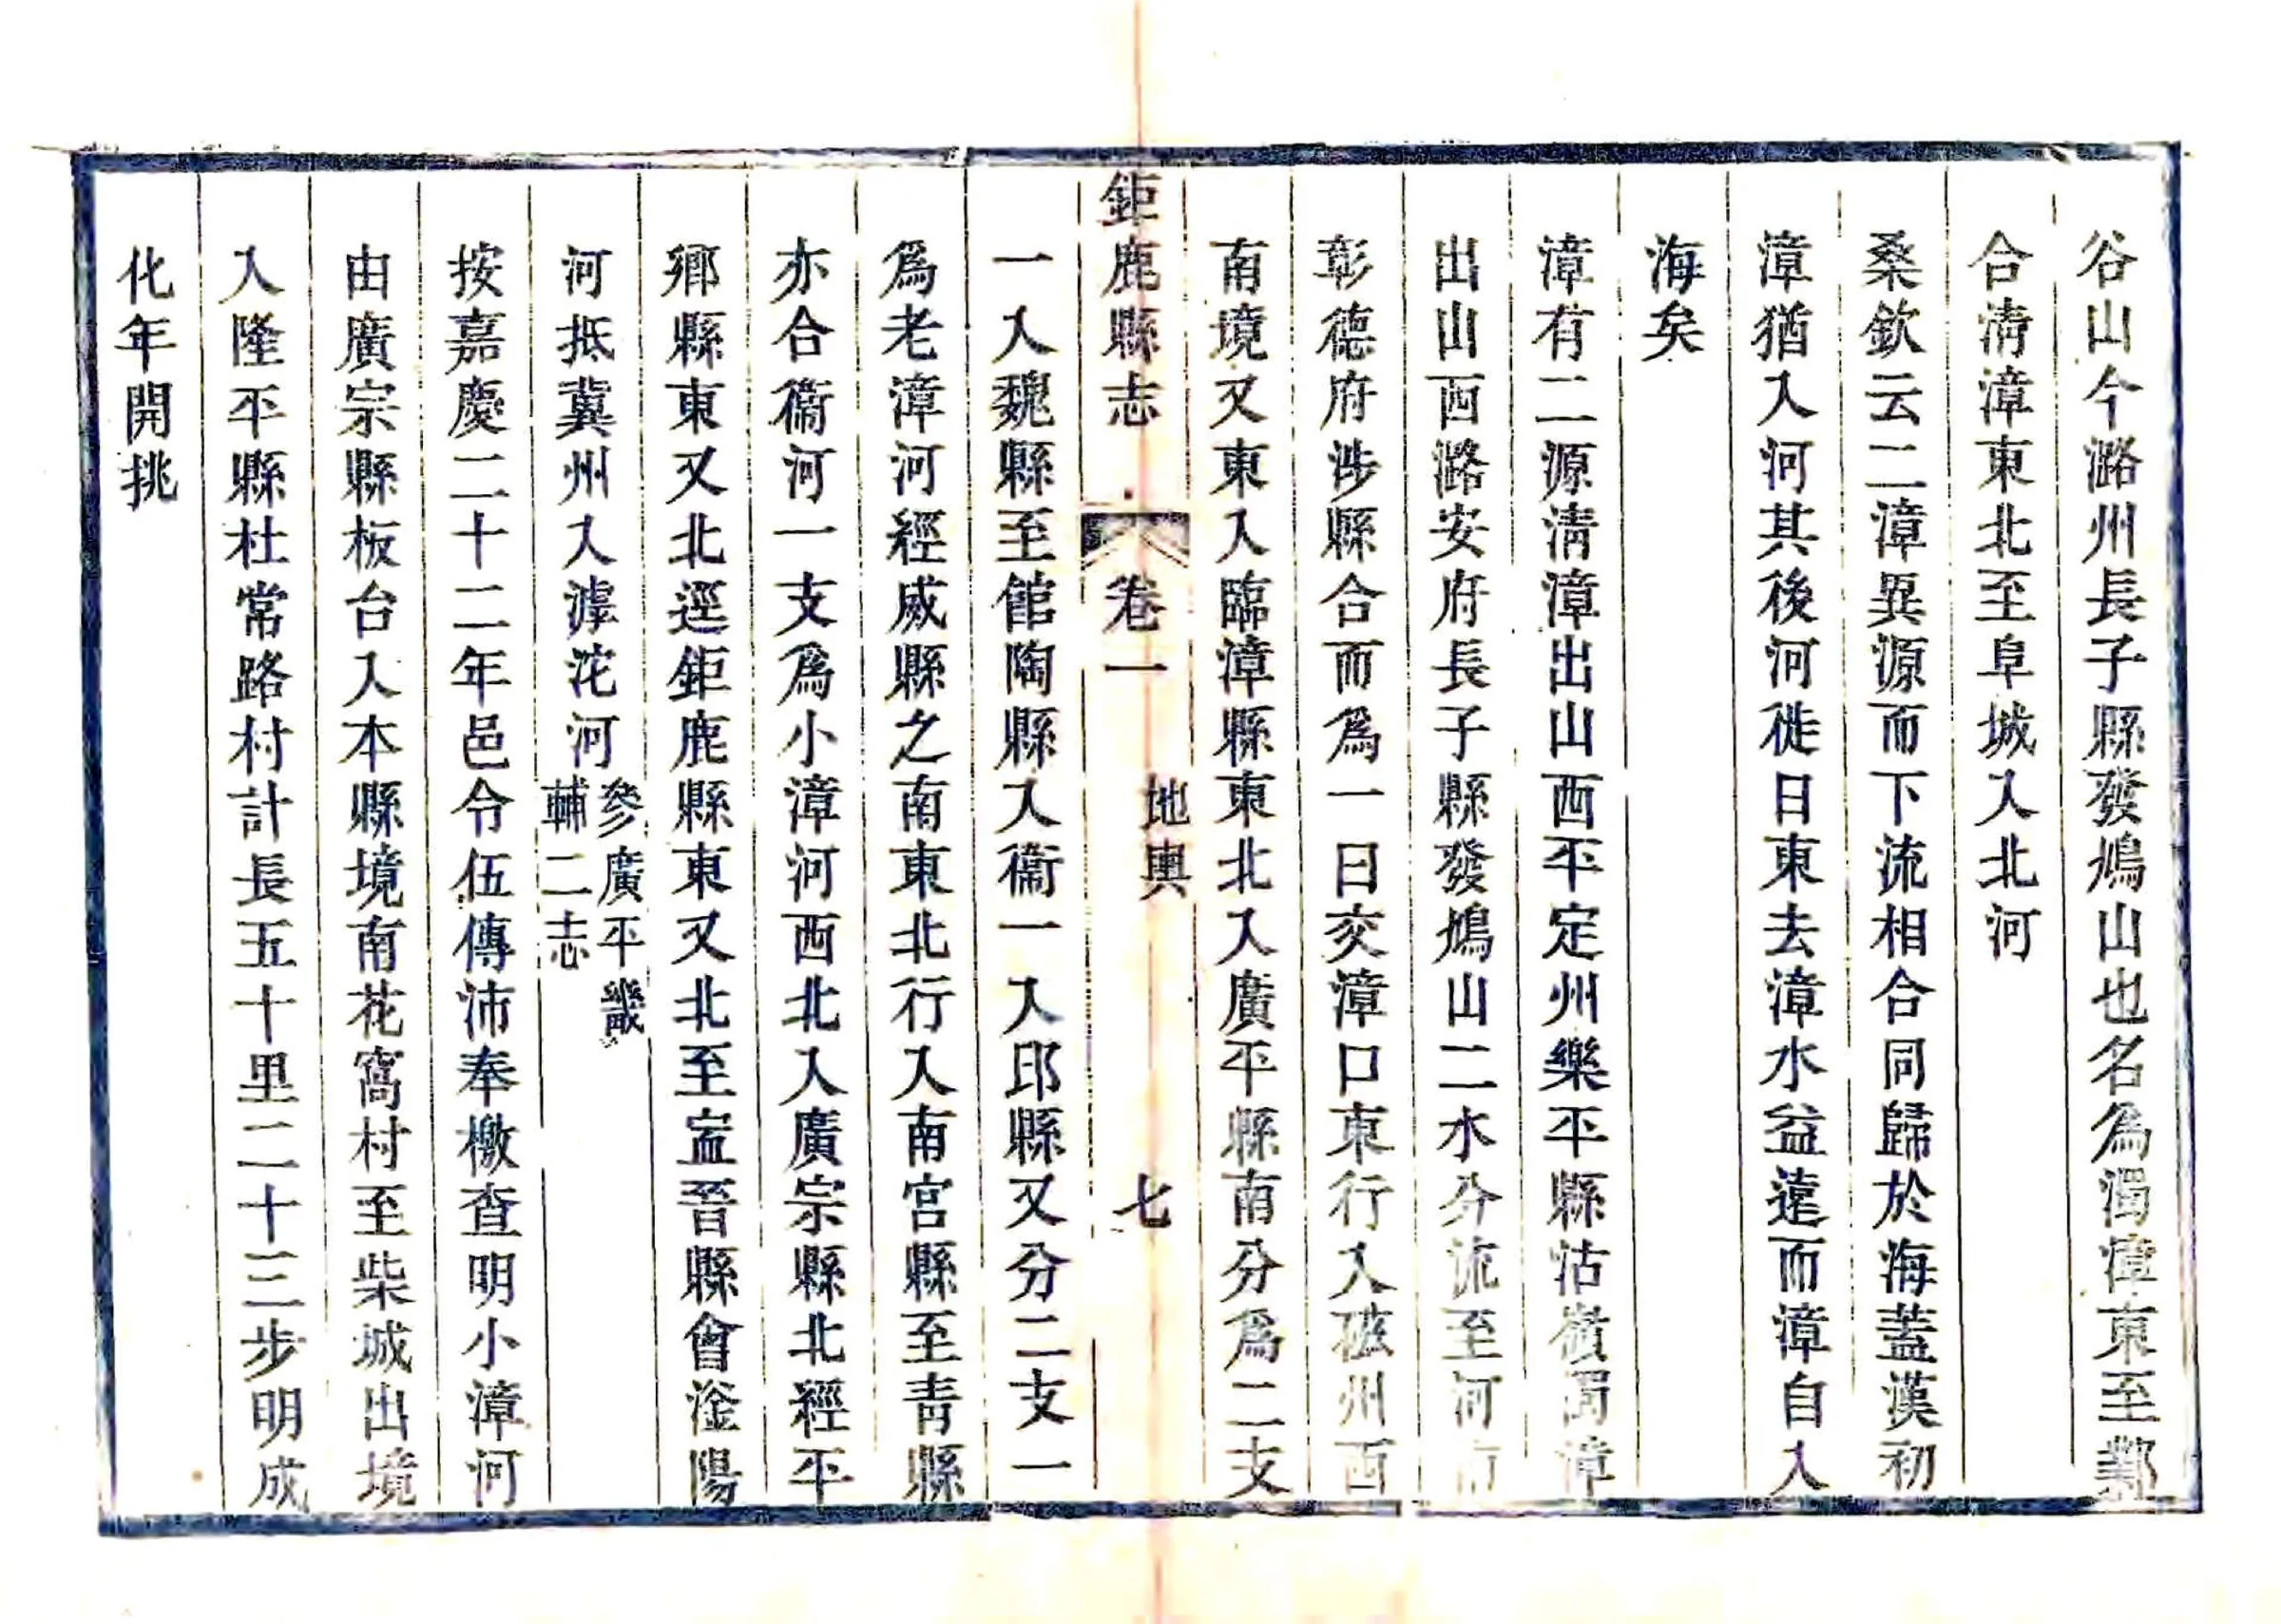 谷山今潞州長子縣發鳩山也名爲濁漳東至鄴
合清漳東北至阜城入北河
桑欽云二漳異源而下流相合同歸於海蓋漢初
漳猶入河其後河徙日東去漳水益遠而漳自入
海矣
漳有二源清漳出山西平定州樂平縣沾嶺濁漳
出山西潞安府長子縣發鳩山二水分流至河南
彰德府涉縣合而爲一曰交漳口東行入磁州西
南境又東入臨漳縣東北入廣平縣南分爲二支
鉅鹿縣志 卷一 地輿 七
一入魏縣至館陶縣入衞一入邱縣又分二支一
爲老漳河經威縣之南東北行入南宮縣至青縣
亦合衞河一支爲小漳河西北入廣宗縣北經平
鄉縣東又北逕鉅鹿縣東又北至寍晉縣會滏陽
河抵冀州入滹沱河參廣平畿輔二志
按嘉慶二十二年邑令伍傳沛奉檄查明小漳河
由廣宗縣板台入本縣境南花窩村至柴城出境
入隆平縣杜常路村計長五十里二十三步明成
化年開挑